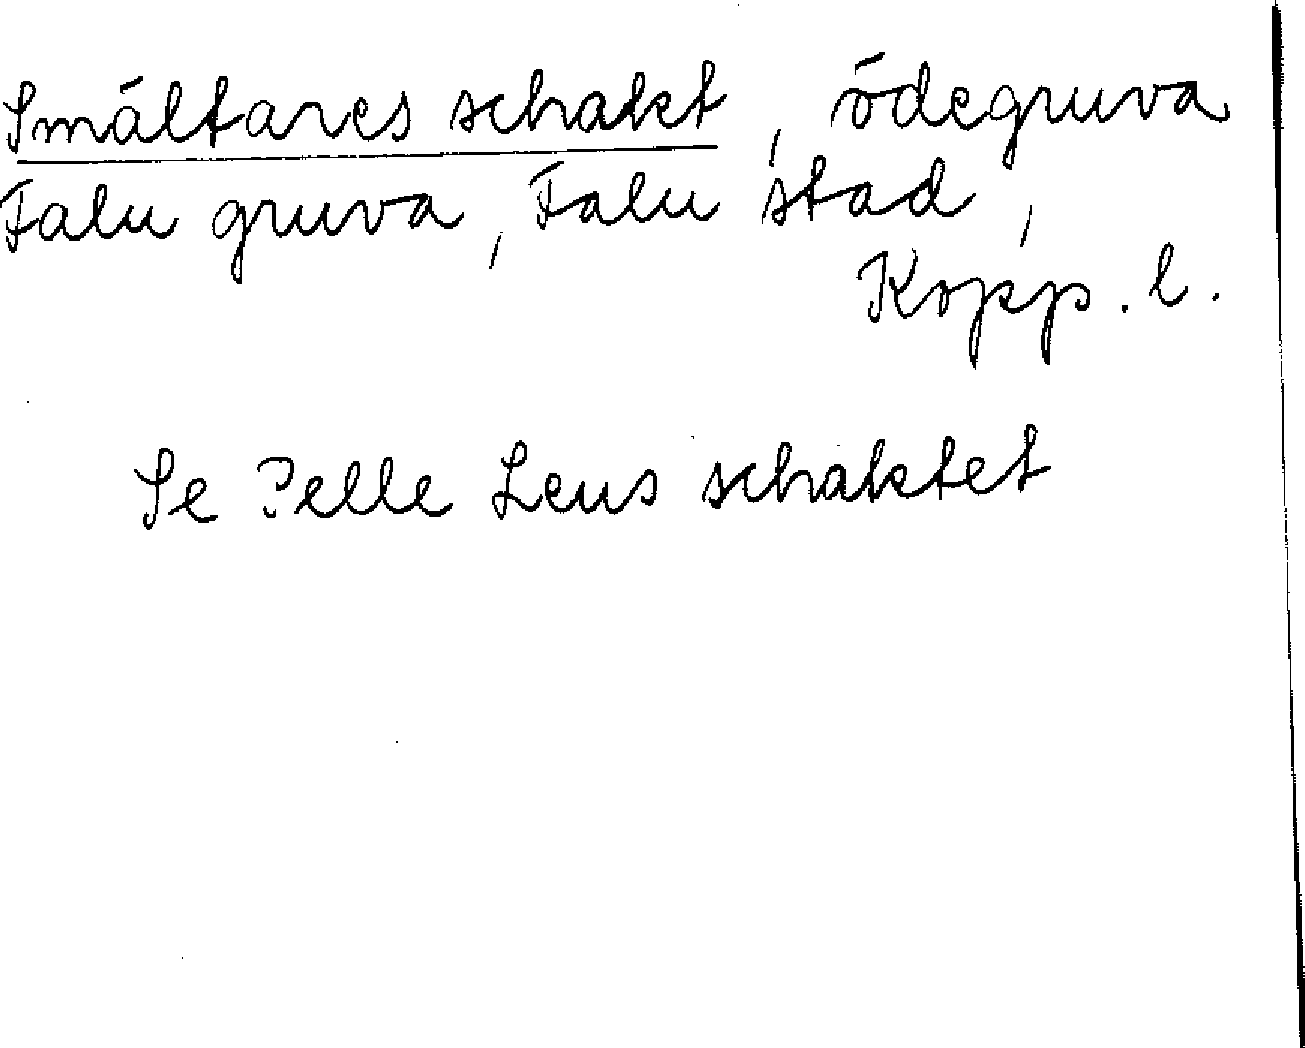 Smältares schakt, ödegruva
Falu gruva, Falu stad,
Kopp. l.
Se Pelle Leus schaktet